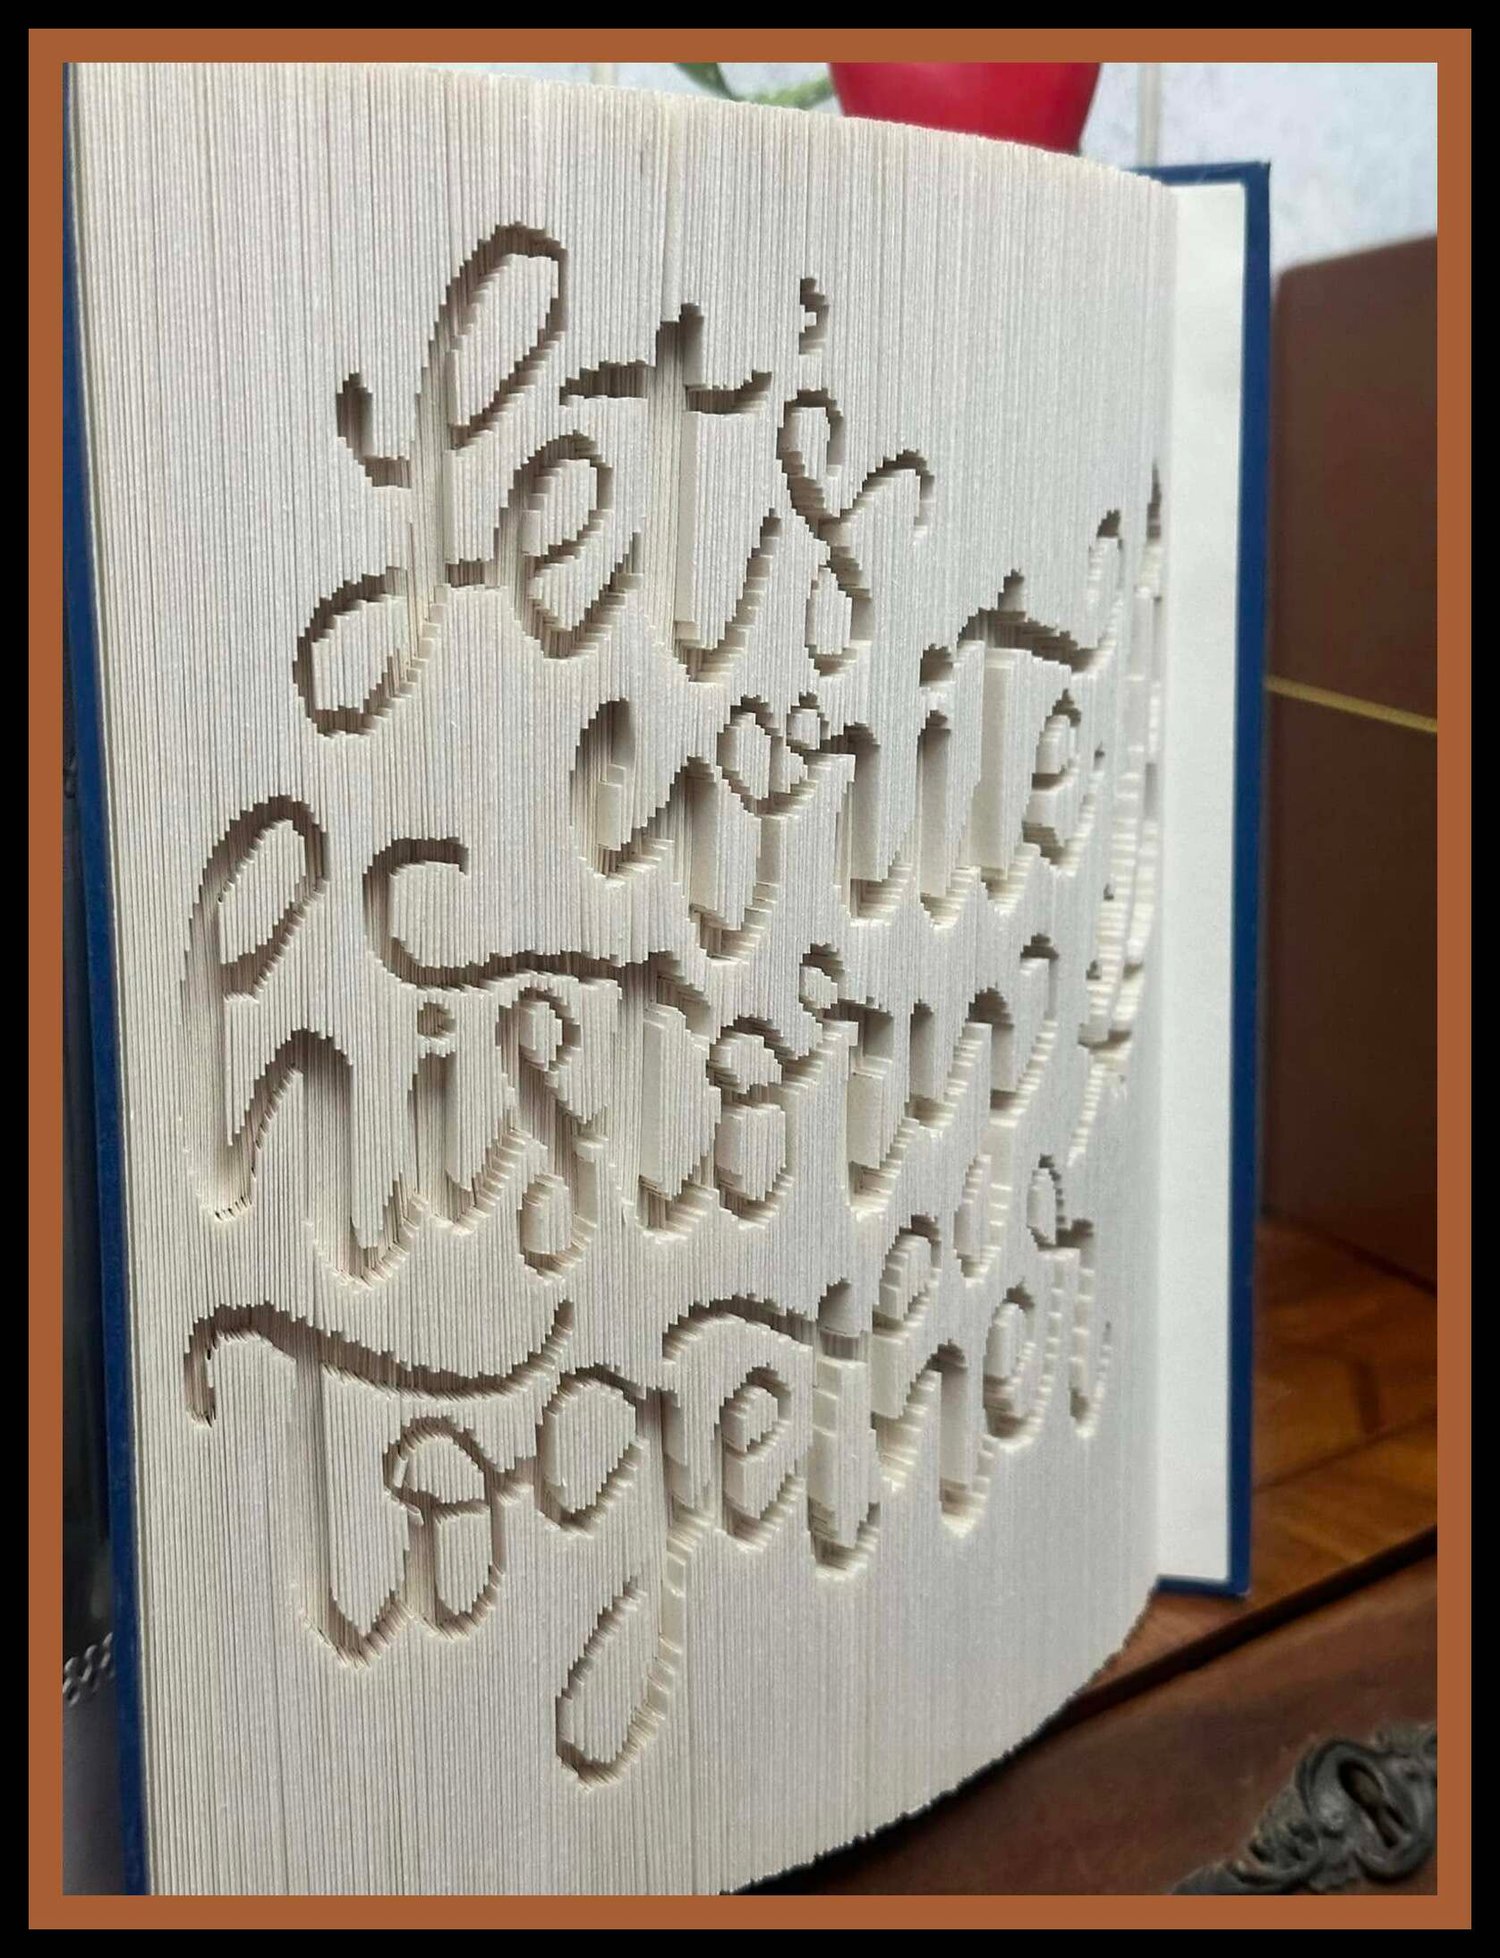 Let's
write
history
together